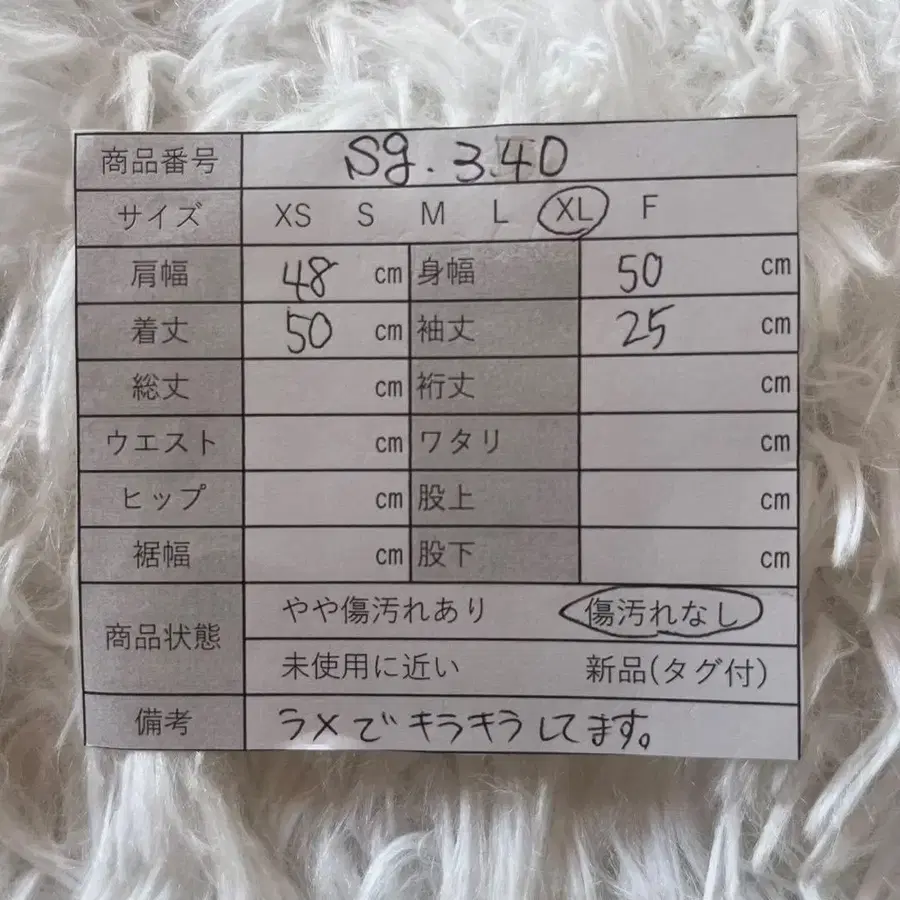 商品番号 Sg.340
サイズ XS S M L XL F
肩幅 48 cm 身幅 50 cm
着丈 50 cm 袖丈 25 cm
総丈 cm 裄丈 cm
ウエスト cm ワタリ cm
ヒップ cm 股上 cm
裾幅 cm 股下 cm
商品状態 やや傷汚れあり 傷汚れなし
未使用に近い 新品(タグ付)
備考 ラメでキラキラしてます。